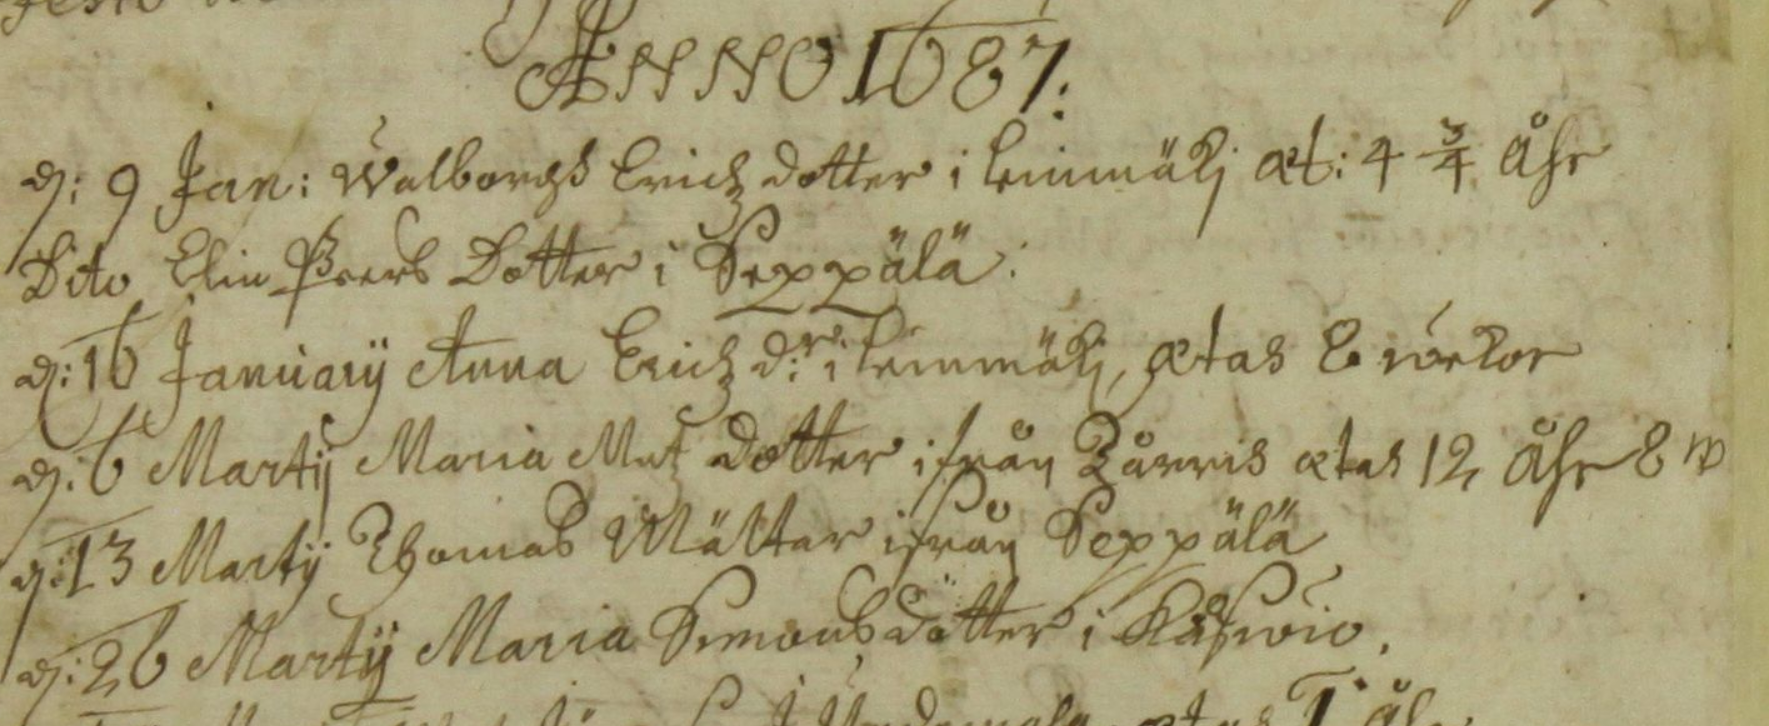 ANNO 1687:
d: 9 Jan: Walborgh Erichz dotter i Leinmäki æt: 4 3/4 Åhr
Dito Elin Peers Dotter i Seppälä:
d: 16 Januarij Anna Erichz d:r i Leinmäki, ætas 8 wekor
d: 6 Martij Maria Mat dotter ifrån ætas 12 Åhr 8 w
d: 13 Martij Thomas Mältar ifrån Seppälä
d: 26 Martij Maria Simons dotter i
ætas Åhr